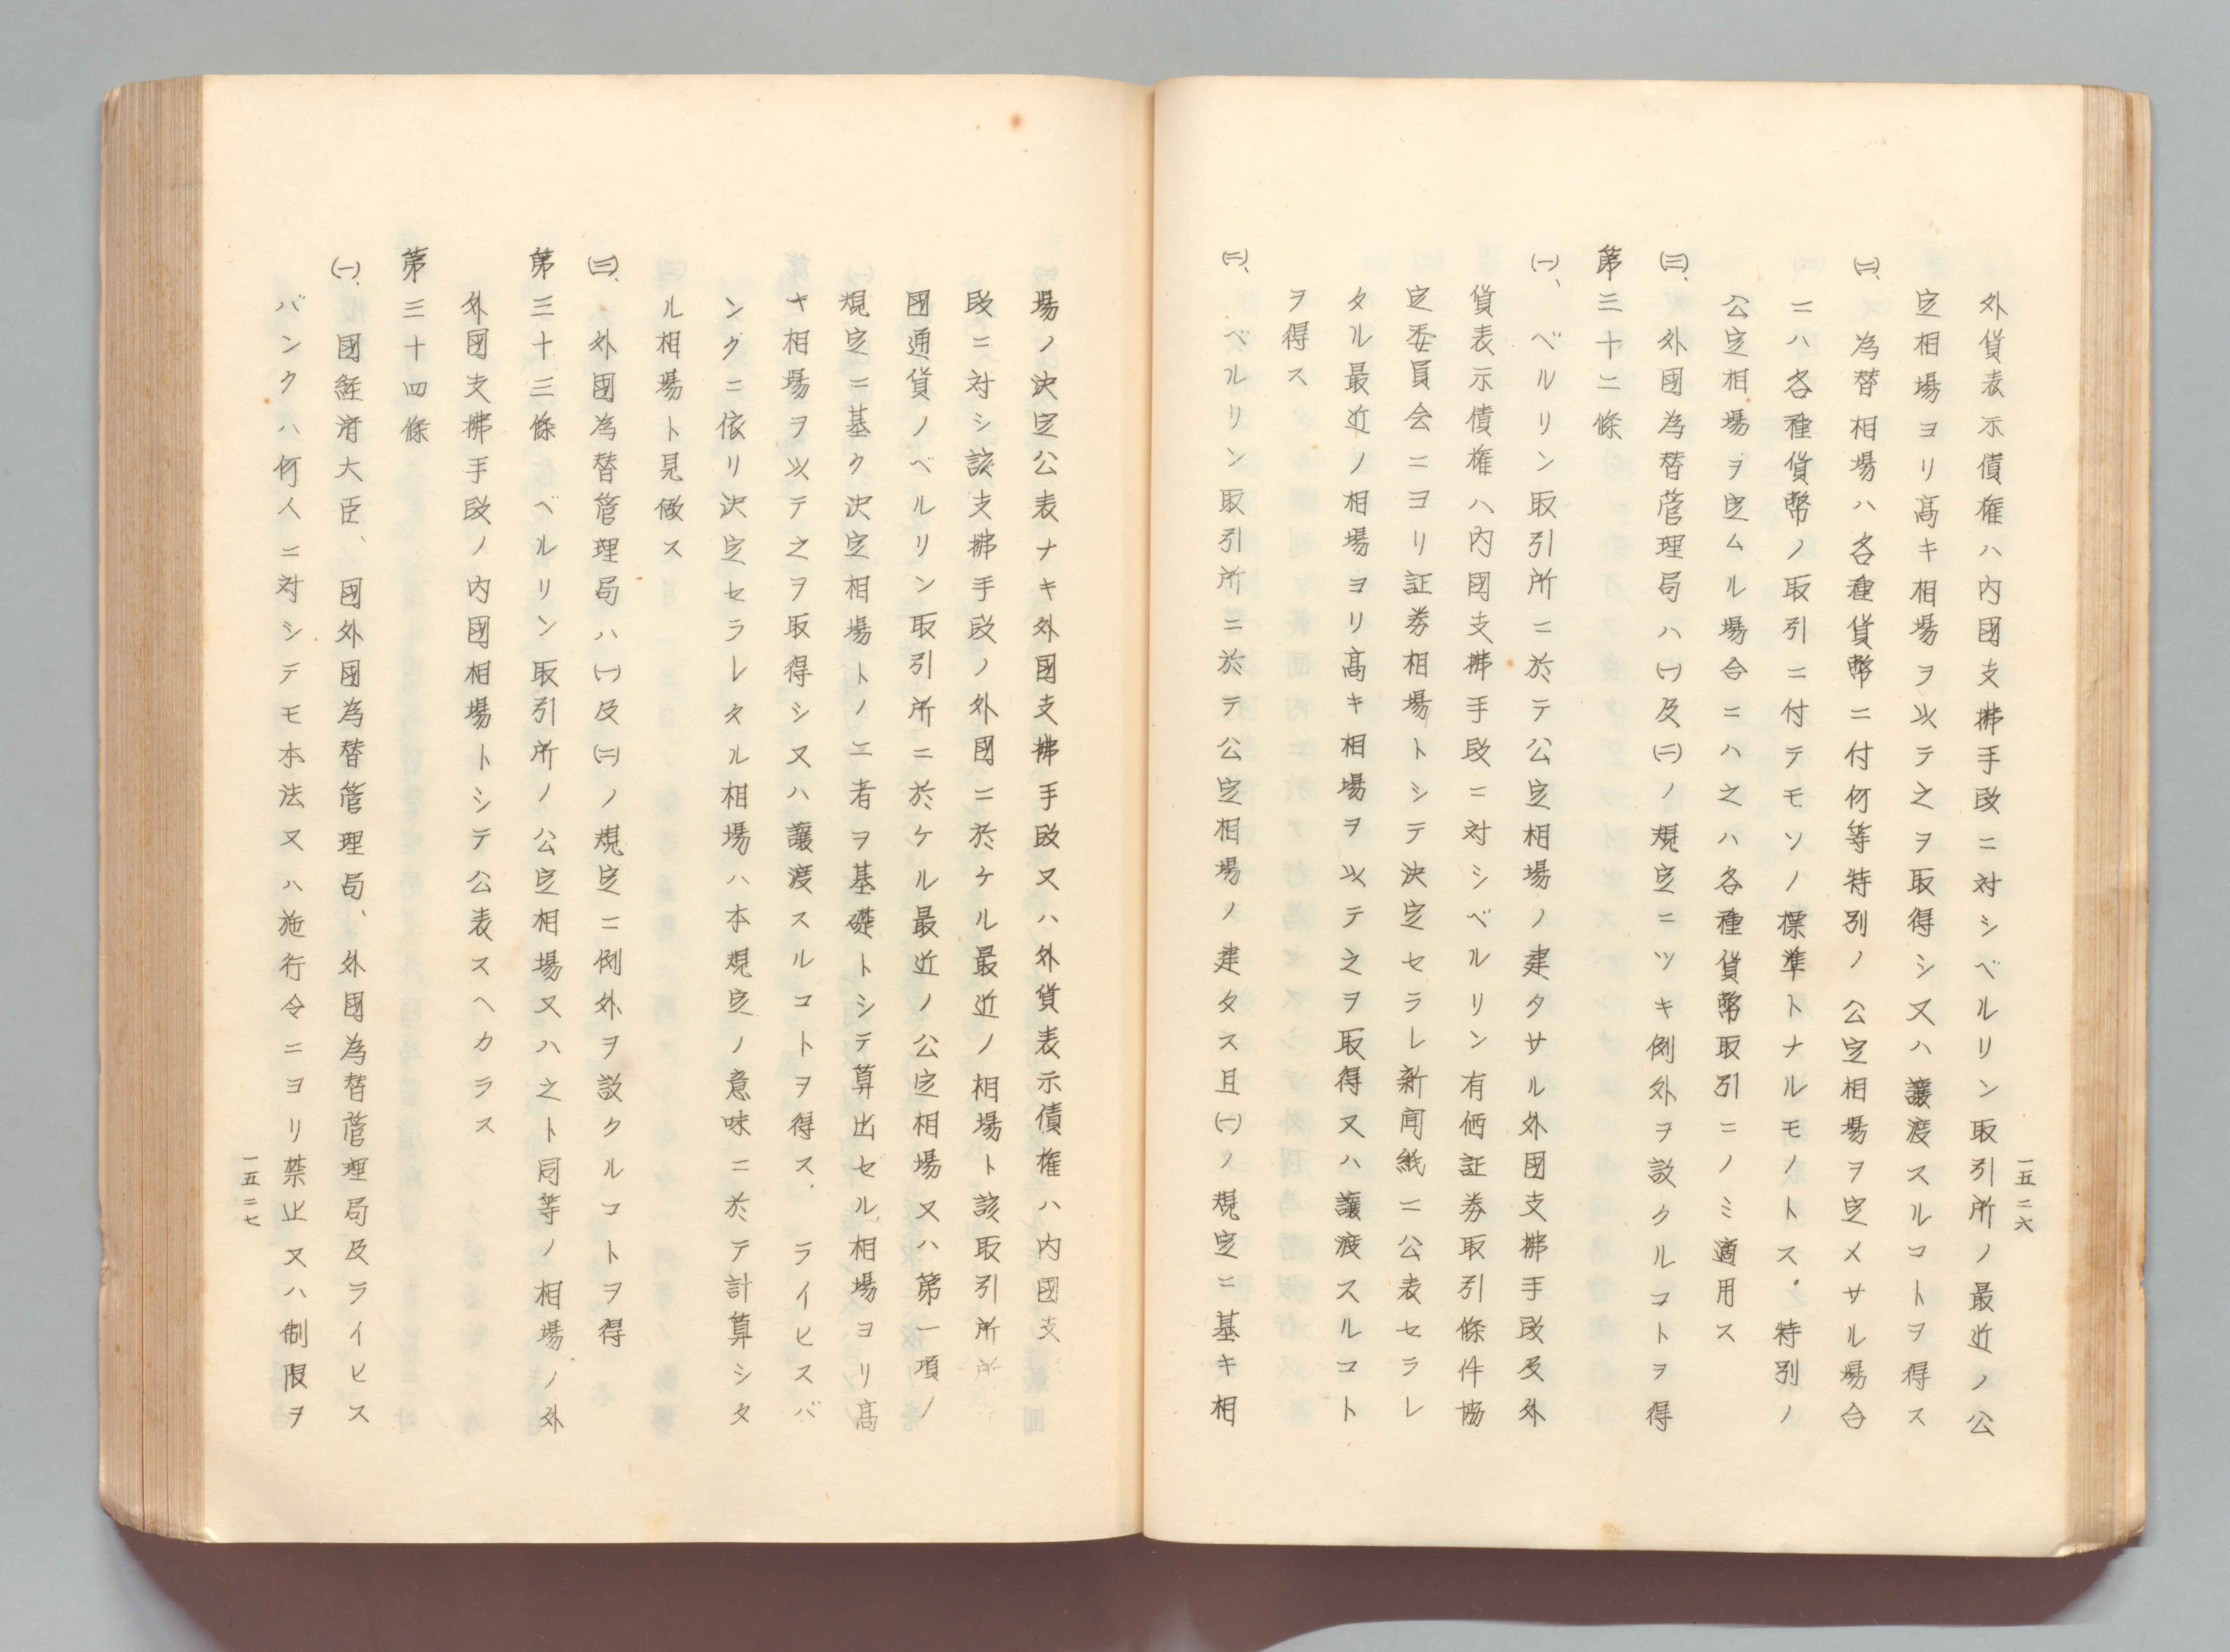 一五二六
外貨表示債権ハ内國支拂手段ニ対シベルリン取引所ノ最近ノ公
定相場ヨリ髙キ相場ヲ以テ之ヲ取得シ又ハ讓渡スルコトヲ得ス
㈡、為替相場ハ各種貨幣ニ付何等特別ノ公定相場ヲ定メサル場合
ニハ各種貨幣ノ取引ニ付テモソノ標準トナルモノトス・特別ノ
公定相場ヲ定ムル場合ニハ之ハ各種貨幣取引ニノミ適用ス
㈢、外國為替管理局ハ㈠及㈡ノ規定ニツキ例外ヲ設クルコトヲ得
第三十二條
㈠、ベルリン取引所ニ於テ公定相場ノ建タサル外國支拂手段及外
貨表示債権ハ内國支拂手段ニ対シベルリン有価証券取引條件協
定委員会ニヨリ証券相場トシテ決定セラレ新聞紙ニ公表セラレ
タル最近ノ相場ヨリ髙キ相場ヲ以テ之ヲ取得又ハ讓渡スルコト
ヲ得ス
㈡、ベルリン取引所ニ於テ公定相場ノ建タス且㈠ノ規定ニ基キ相
場ノ決定公表ナキ外國支拂手段又ハ外貨表示債権ハ内國支
段ニ対シ該支拂手段ノ外國ニ於ケル最近ノ相場ト該取引所所
國通貨ノベルリン取引所ニ於ケル最近ノ公定相場又ハ第一項ノ
規定ニ基ク決定相場トノ二者ヲ基礎トシテ算出セル相場ヨリ髙
キ相場ヲ以テ之ヲ取得シ又ハ讓渡スルコトヲ得ス、ライヒスバ
ンクニ依リ決定セラレタル相場ハ本規定ノ意味ニ於テ計算シタ
ル相場ト見做ス
㈢、外國為替管理局ハ㈠及㈡ノ規定ニ例外ヲ設クルコトヲ得
第三十三條　ベルリン取引所ノ公定相場又ハ之ト同等ノ相場ノ外
外國支拂手段ノ内國相場トシテ公表スヘカラス
第三十四條
㈠、國経済大臣、國外國為替管理局、外國為替管理局及ライヒス
バンクハ何人ニ対シテモ本法又ハ施行令ニヨリ禁止又ハ制限ヲ
一五二七